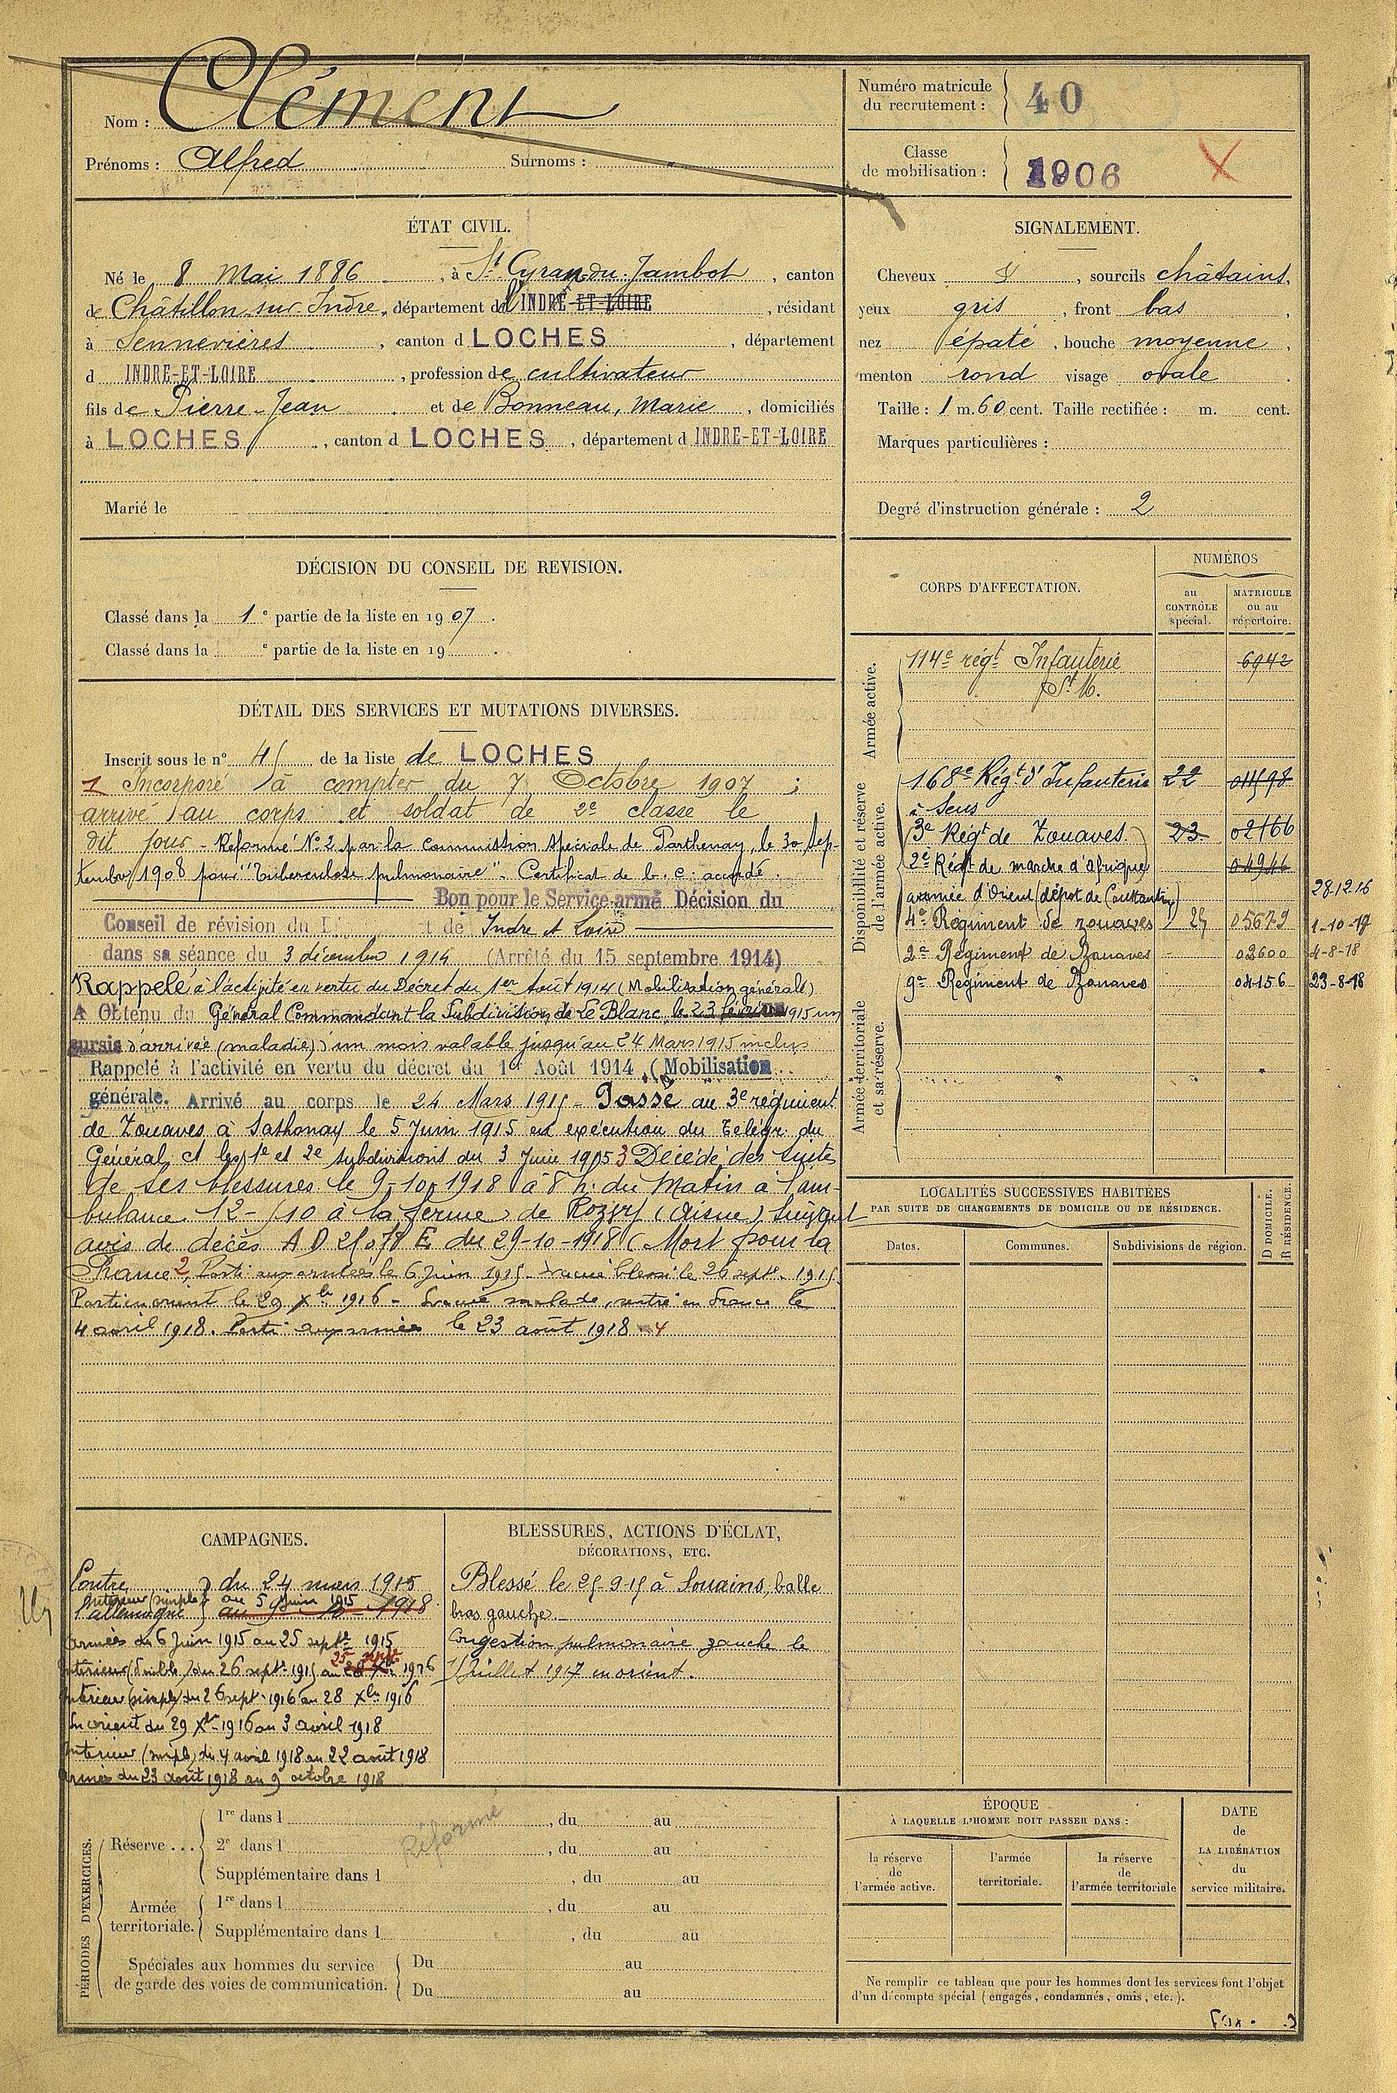 Nom : Clément
Prénoms : Alfred Surnoms : "
Numéro matricule
du recrutement : 40
Classe
de mobilisation : 1906 X
ÉTAT CIVIL.
Né le 8 Mai 1886, à St Cyran-du-Jambot, canton
de Châtillon-sur-Indre, département de l'INDRE-ET-LOIRE, résidant
à Sennevières, canton d LOCHES, département
d INDRE-ET-LOIRE, profession de cultivateur
fils de Pierre-Jean et de Bonneau, Marie, domiciliés
à LOCHES, canton d LOCHES, département d INDRE-ET-LOIRE
Marié le
SIGNALEMENT.
Cheveux, sourcils châtains,
yeux gris, front bas,
nez épaté, bouche moyenne,
menton rond visage ovale.
Taille : 1 m. 60 cent. Taille rectifiée : m. cent.
Marques particulières :
Degré d'instruction générale : 2
DÉCISION DU CONSEIL DE REVISION.
Classé dans la 1e partie de la liste en 1907.
Classé dans la e partie de la liste en 19 .
DÉTAIL DES SERVICES ET MUTATIONS DIVERSES.
Inscrit sous le n° 45 de la liste de LOCHES
1 Incorporé à compter du 7 Octobre 1907 ;
arrivé au corps et soldat de 2e classe le
dit jour - Réformé N° 2 par la commission spéciale de Parthenay, le 30 sep-
tembre 1908 pour "Tuberculose pulmonaire". Certificat de b. c. accordé.
Bon pour le Service armé Décision du
Conseil de révision du D t de Indre et Loire
dans sa séance du 3 décembre 1914 (Arrêté du 15 septembre 1914)
Rappelé à l'activité en vertu du Décret du 1er Août 1914 (Mobilisation générale)
A Obtenu du Général Commandant la Subdivision de Le Blanc, le 23 février 1915 un
sursis d'arrivée (maladie) un mois valable jusqu'au 24 Mars 1915 inclus
Rappelé à l'activité en vertu du décret du 1er Août 1914 (Mobilisation
générale. Arrivé au corps le 24 Mars 1915 - Passé au 3e régiment
de Zouaves à Sathonay le 5 Juin 1915 en exécution du Télégr. du
Général Ct les 1e et 2e subdivisions du 3 Juin 1905 3 Décédé des suites
de ses blessures le 9-10-1918 à 8 h. du Matin à l'am-
bulance 12-/10 à la ferme de Rozoy (Aisne) Suivant
avis de décès A D 25078 E du 29-10-1918 (Mort pour la
France 2, Parti aux armées le 6 Juin 1915. évacué blessé le 26 septe 1915
Parti en orient le 29 Xbre 1916 - évacué malade, rentré en France le
4 avril 1918. Parti aux armées le 23 août 1918 - 4
CORPS D'AFFECTATION.
NUMÉROS
au CONTRÔLE spécial.
MATRICULE ou au répertoire.
Armée active.
114e régt Infanterie 6942
St M.
Disponibilité et réserve de l'armée active.
168e Régt d'Infanterie 22 01598
à Sens
3e Régt de Zouaves 23 02166
2e Régt de marche d'Afrique 04946
armée d'Orient (dépôt de Constantine) 28.12.16
4e Régiment de zouaves 25 05679 1-10-17
2e Régiment de Zouaves - 03600 4-8-18
9e Régiment de Zouaves 04156 23-8-18
Armée territoriale et sa réserve.
LOCALITÉS SUCCESSIVES HABITÉES
PAR SUITE DE CHANGEMENTS DE DOMICILE OU DE RÉSIDENCE.
Dates. Communes. Subdivisions de région.
D DOMICILE.
R RÉSIDENCE.
CAMPAGNES.
Contre du 24 mars 1915
l'allemagne
Intérieur (simple) au 5 Juin 1915
au 9 10 1918
Armées du 6 Juin 1915 au 25 septe 1915
Intérieur (double) du 26 septe 1915 au 25 sept 1916
Intérieur (simple) du 26 septe 1916 au 28 Xbre 1916
En orient du 29 Xbre 1916 au 3 avril 1918
Intérieur (simple) du 4 avril 1918 au 22 août 1918
Armées du 23 août 1918 au 9 octobre 1918
BLESSURES, ACTIONS D'ÉCLAT,
DÉCORATIONS, ETC.
Blessé le 25-9-15 à Souains, balle
bras gauche.
Congestion pulmonaire gauche le
1 Juillet 1917 en orient.
PÉRIODES D'EXERCICES.
Réserve...
1re dans l , du au
2e dans l , du au
Supplémentaire dans l , du au
Réformé
Armée territoriale.
1re dans l , du au
Supplémentaire dans l , du au
Spéciales aux hommes du service
de garde des voies de communication.
Du au
Du au
ÉPOQUE
À LAQUELLE L'HOMME DOIT PASSER DANS :
la réserve de l'armée active.
l'armée territoriale.
la réserve de l'armée territoriale
DATE
de
LA LIBÉRATION
du
service militaire.
Ne remplir ce tableau que pour les hommes dont les services font l'objet
d'un décompte spécial (engagés, condamnés, omis, etc.).